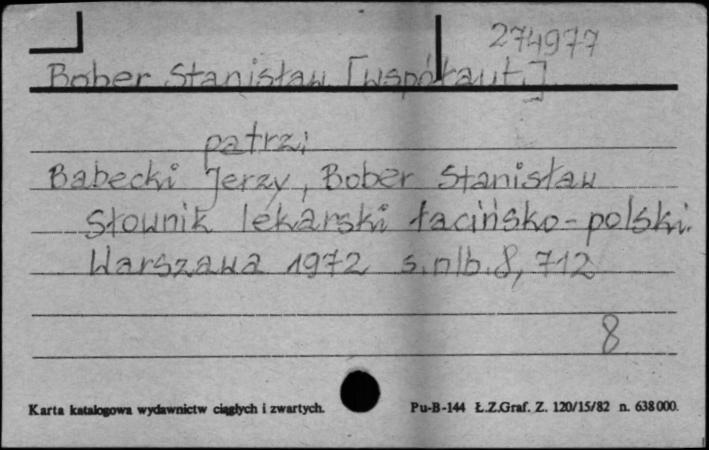 274977
Bober Stanisław [współaut.]
patrz:
Babecki Jerzy, Bober Stanisław
Słownik lekarski łacińsko-polski.
Warszawa 1972 s.nlb.8, 712
8
Karta katalogowa wydawnictw ciągłych i zwartych. Pu-B-144 Ł.Z.Graf. Z. 120/15/82 n. 638000.